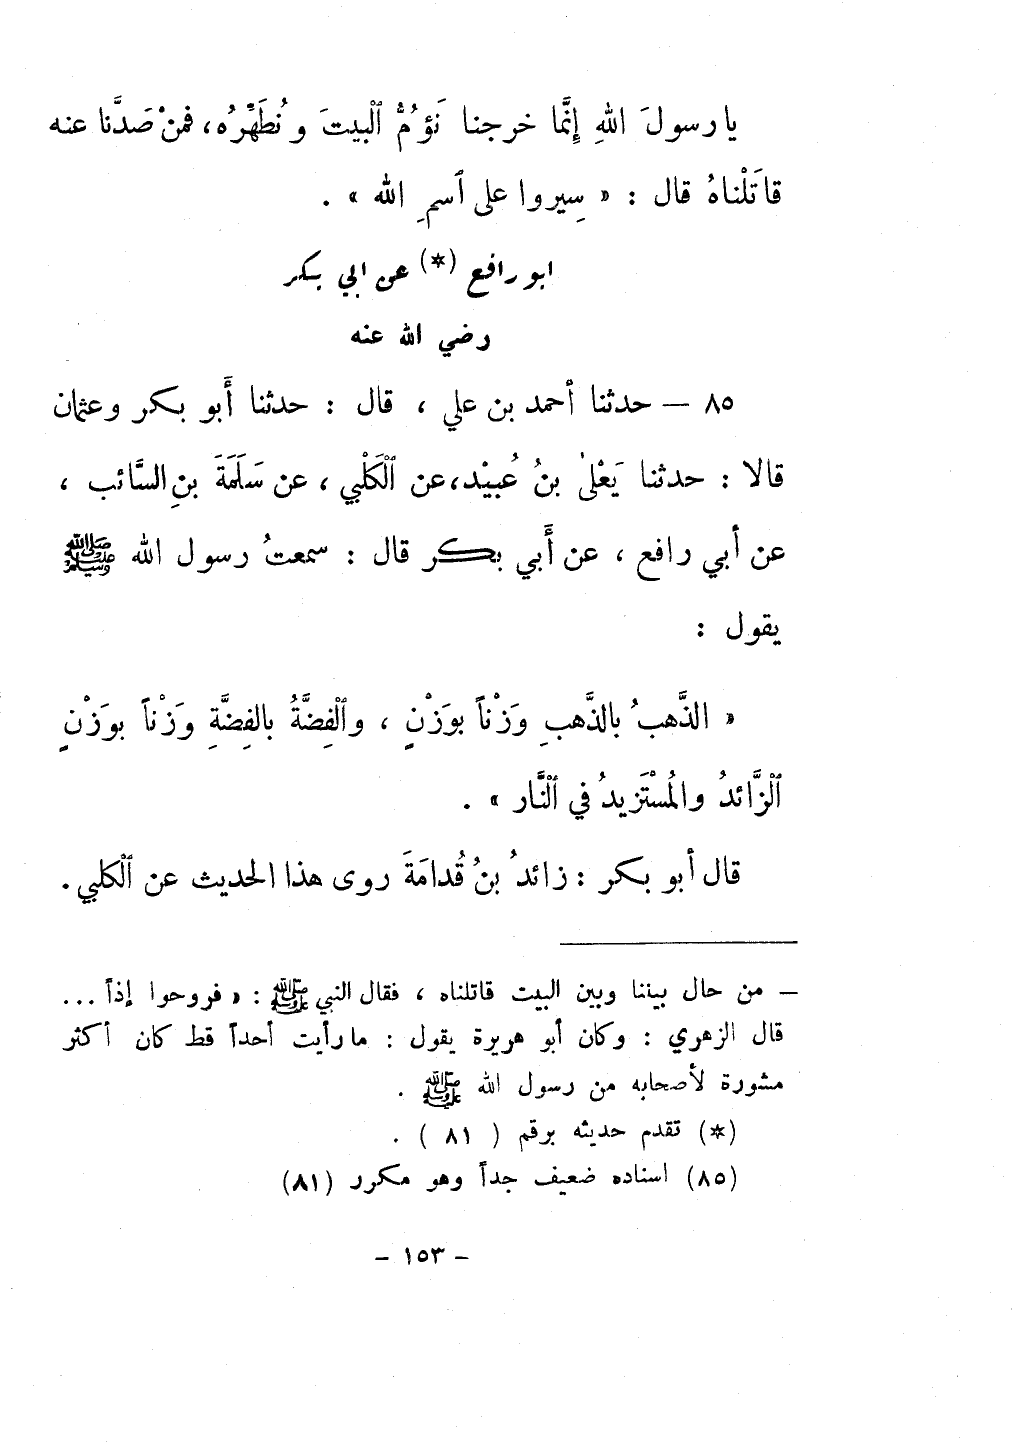 يا رسولَ اللهِ إِنَّما خرجنا نَؤُمُّ ٱلْبيتَ ونُطَهِّرُه، فمنْ صَدَّنا عنه
قاتَلْناهُ قال : « سِيروا على ٱسمِ الله » .
ابو رافع (*) عن ابي بكر
رضي الله عنه
٨٥ — حدثنا أحمد بن علي ، قال : حدثنا أَبو بكر وعثمان
قالا : حدثنا يَعْلىٰ بنُ عُبيْد، عن ٱلْكَلْبي ، عن سَلَمَةَ بنِ السَّائب ،
عن أبي رافع ، عن أَبي بكر قال : سمعتُ رسول الله ﷺ
يقول :
« الذَّهبُ بالذَّهبِ وَزْناً بوَزْنٍ ، وٱلْفِضَّةُ بالفِضَّةِ وَزْناً بوَزْنٍ
ٱلْزَّائدُ والمُسْتَزِيدُ في ٱلنَّار » .
قال أبو بكر : زائدُ بنُ قُدامَةَ روى هذا الحديث عن ٱلْكلبي .
— من حال بيننا وبين البيت قاتلناه ، فقال النبي ﷺ : « فروحوا إذاً ...
قال الزهري : وكان أبو هريرة يقول : ما رأيت أحداً قط كان أكثر
مشورة لأصحابه من رسول الله ﷺ .
(*) تقدم حديثه برقم ( ٨١ ) .
(٨٥) اسناده ضعيف جداً وهو مكرر (٨١)
- ١٥٣ -